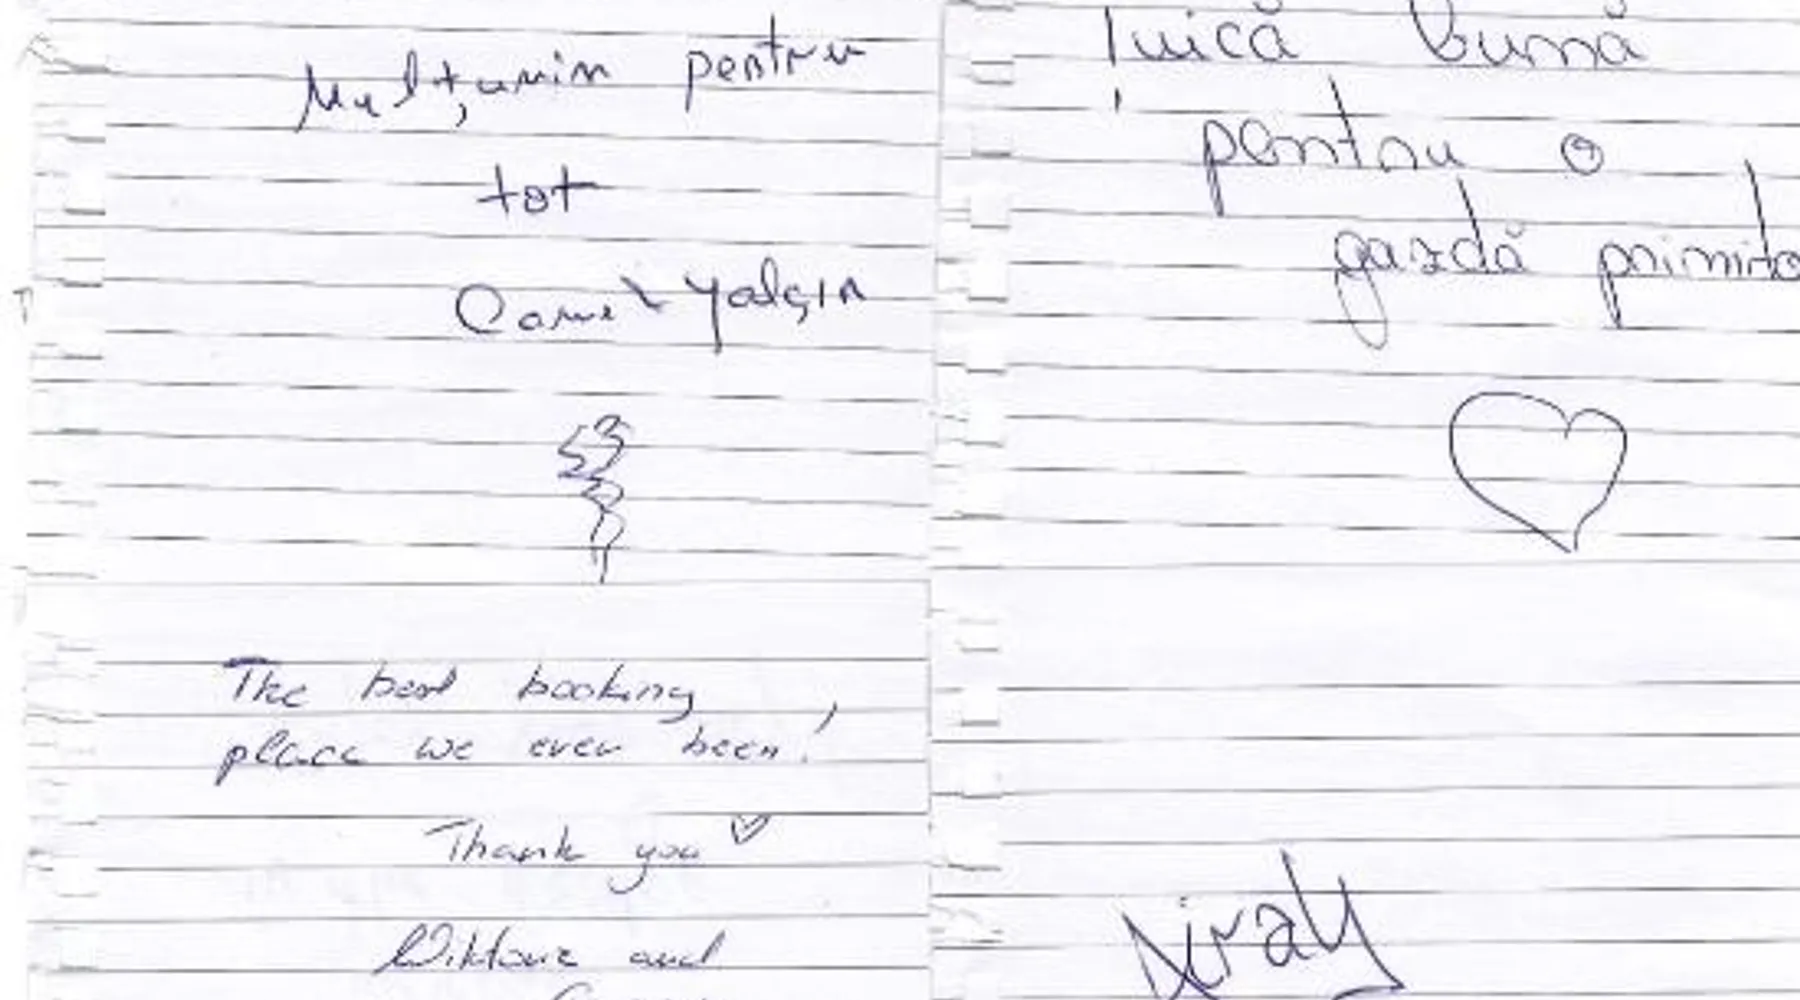 Mulțumim pentru
tot
Yalçın
The best booking
place we ever been!
Thank you ♡
and
Țuică bună
pentru o
gazdă primito